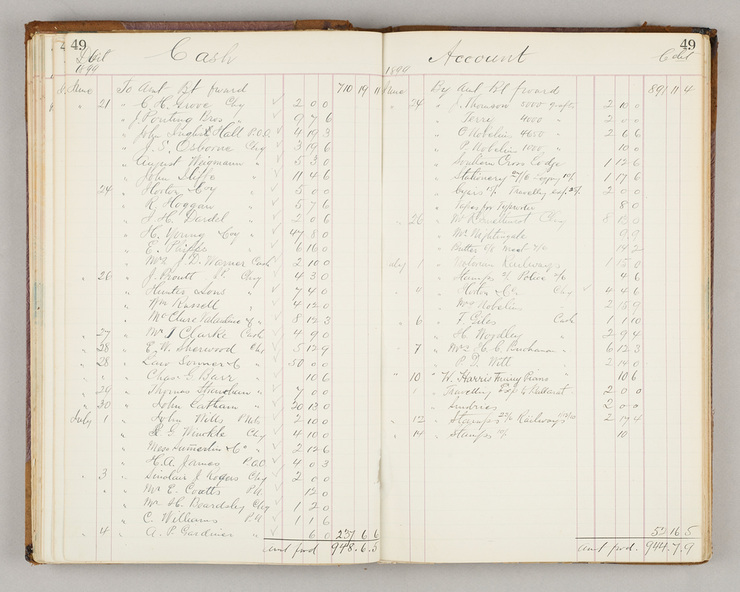 49
Dr Cash
1899
June To Amt Bt forward 710 19 11
" 21 " C. H. Grove Chq 2 0 0
" J Ponting Bros " 9 7 6
" John Hall P.O.O. 4 19 3
" J. S. Osborne Chq 3 19 6
" August Wiegmann " 5 3 0
" John " 11 4 6
24 " & Coy " 5 0 0
" R. Hoggan " 5 7 6
" J. H. Dardel " 2 0 6
" H. Young & Coy " 47 8 0
" E. Phipps " 6 16 0
" Mrs J. D. Warner Cash 2 10 0
" 26 " J. Proutt Chq 4 3 0
" Hunter & Sons " 7 4 0
" Wm Russell " 4 12 0
" McClure Valantine & Co " 8 12 3
" 27 " Mr J Clarke Cash 4 9 0
" 28 " E. W. Sherwood Chq 5 12 9
" 28 " Law Somner & Co " 50 0 0
" Chas G. Barr " 10 6
" 29 " Thomas " 7 0 0
" 30 " John " 20 13 0
July 1 " John Wills P.Note 2 10 0
" Winkle Chq 4 10 0
" & Co " 2 12 6
" H. A. James P.O.O. 4 0 3
" 3 " Sinclair J Rogers Chq 2 0 0
" Mr E. Coatts P.N. 12 0
" Mr H. Beardsley Chq 1 2 0
" C. Williams P.N. 1 1 6
" 4 " A. P. Gardiner " 6 0 237 6 6
Amt fwd 948 6 5
Account
49
1899
June By Amt Bt forward 891 11 4
" 24 " J. Thomson 5000 grafts 2 10 0
" Terry 4000 " 2 0 0
" O Nobelius 4600 " 2 6 6
" P. Nobelius 1000 " 10 0
" Southern Cross Lodge 1 12 6
" Stationery 1 17 6
" Travelling 2 0 0
" 8 0
" 26 " Chq
" Mr Nightingale 9 9
" Butter meat 14 2
July 1 " Victorian Railways 1 15 0
" Stamps 4 6
" 4 " & Co Chq 4 4 6
" Mrs Nobelius 2 15 9
" 6 " T. Giles Cash 1 10
" H. Woodley " 2 9 4
" 7 " Mrs H. C. Buchanan " 6 12 3
" P. D. Witt " 2 14 0
" 10 " W. Harris Tuning Piano 10 6
" Travelling Exp to Ballarat 2 0 0
" Sundries 2 0 0
" 12 " Stamps Railways 2 17 4
" 14 " Stamps 10
52 16 5
Amt fwd. 944 7 9